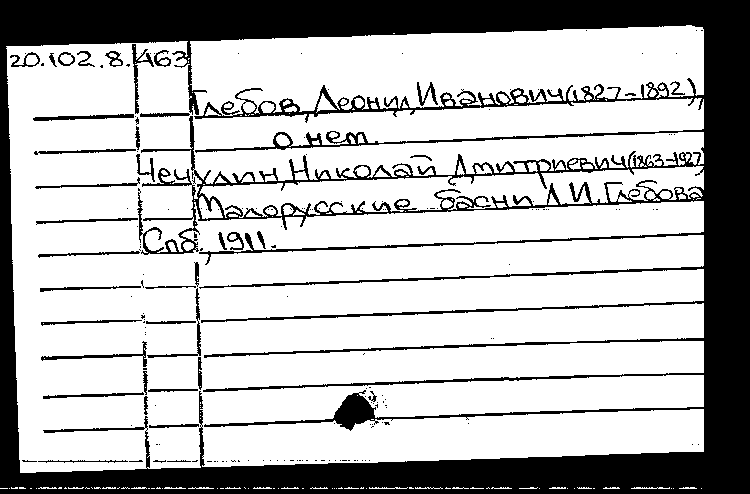 20.102.8.463
Глебов, Леонид Иванович (1827-1892),
о нем.
Нечулин, Николай Дмитриевич (1863-1927)
Малорусские басни Л.И. Глебова
Спб., 1911.